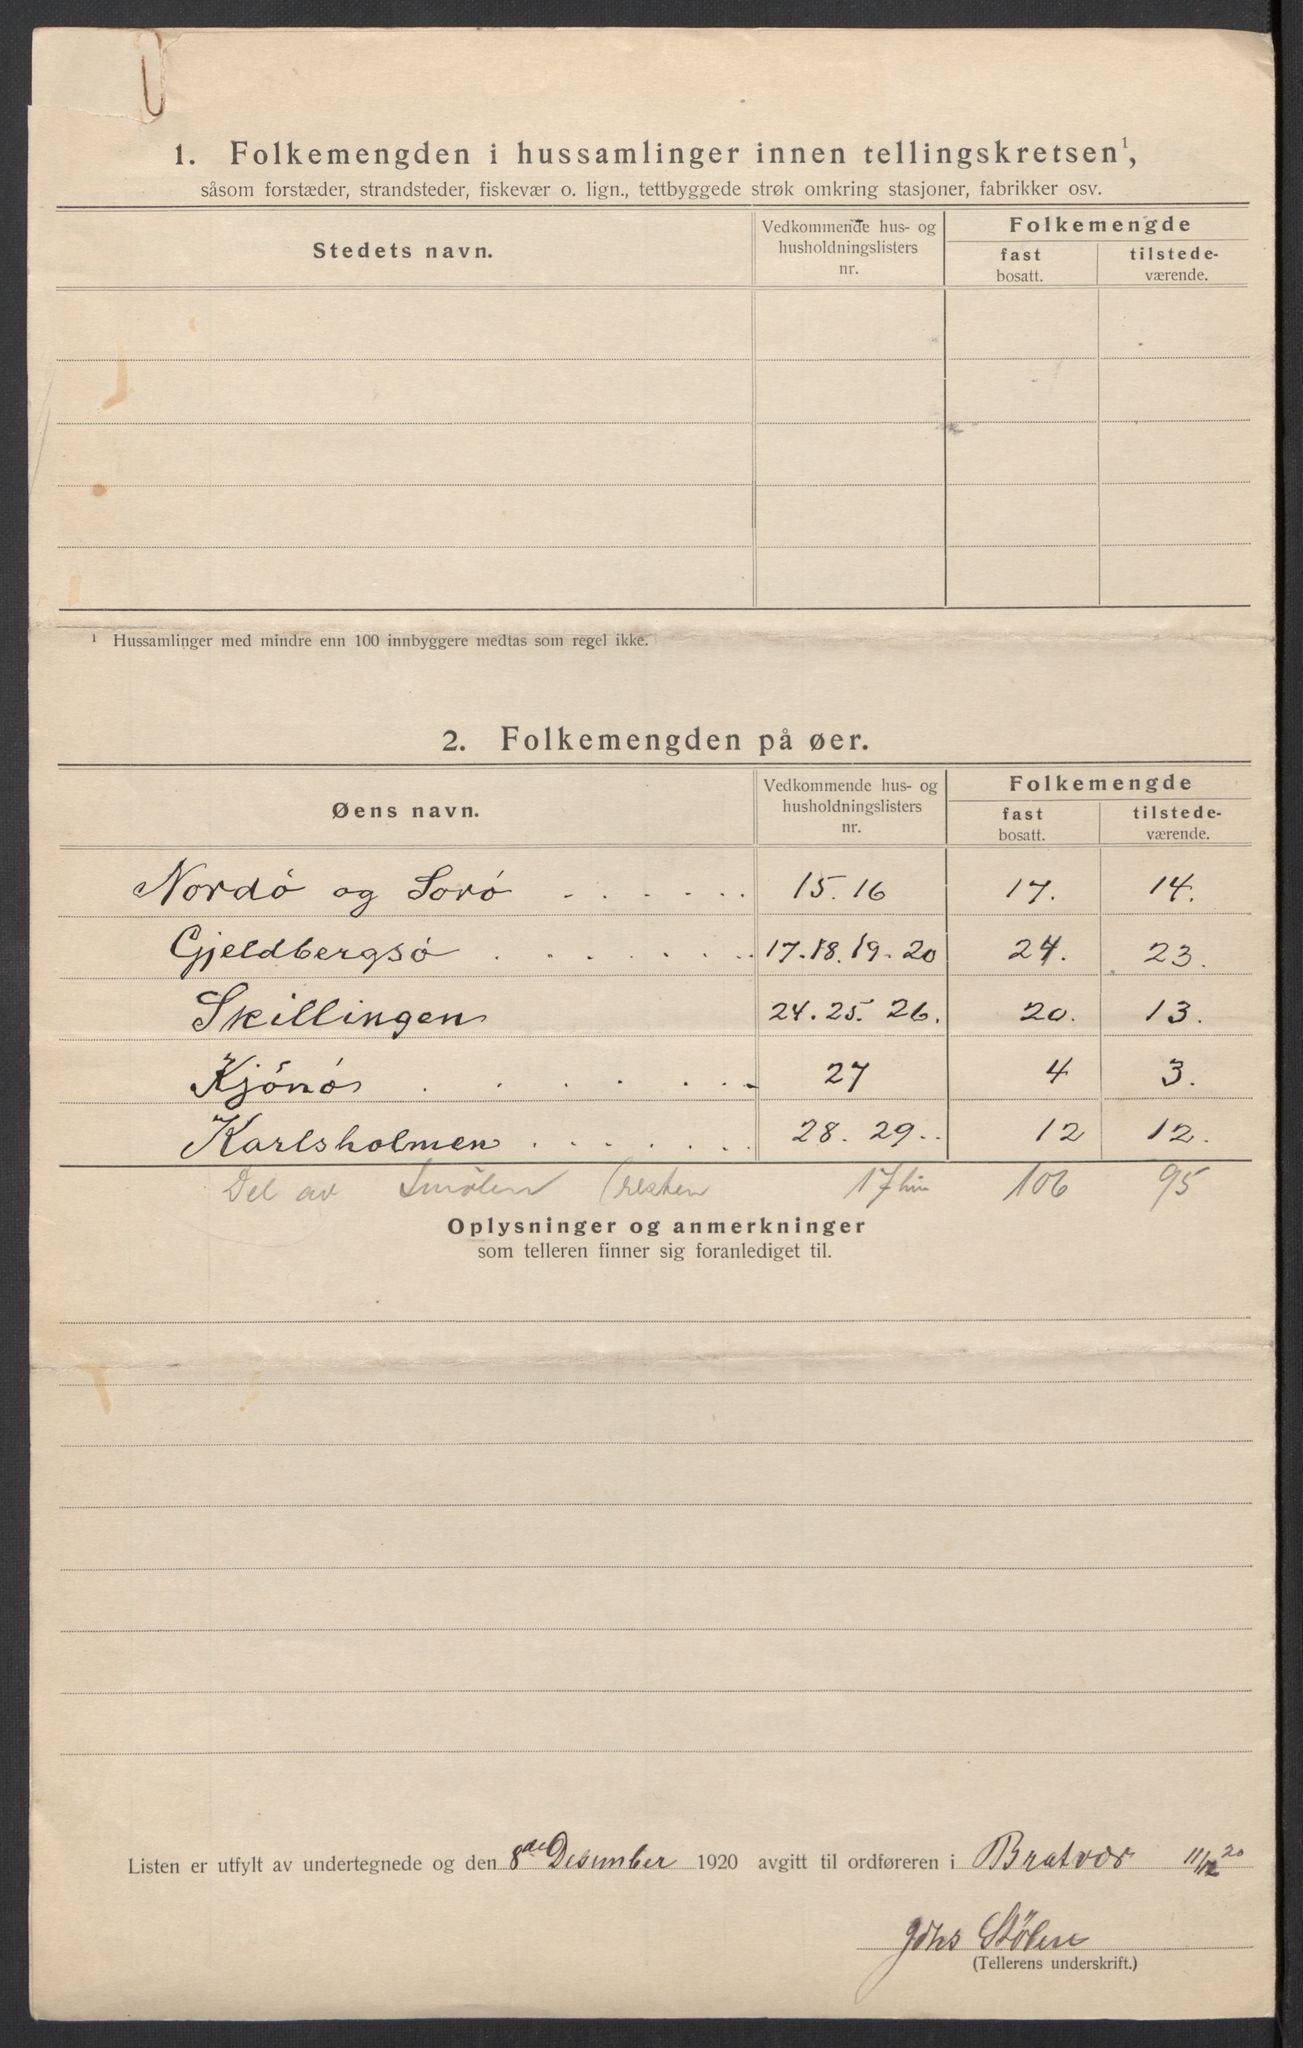 1. Folkemengden i hussamlinger innen tellingskretsen¹,
såsom forstæder, strandsteder, fiskevær o. lign., tettbyggede strøk omkring stasjoner, fabrikker osv.
Stedets navn.
Vedkommende hus- og husholdningslisters nr.
Folkemengde
fast bosatt.
tilstede-værende.
¹ Hussamlinger med mindre enn 100 innbyggere medtas som regel ikke.
2. Folkemengden på øer.
Øens navn.
Vedkommende hus- og husholdningslisters nr.
Folkemengde
fast bosatt.
tilstede-værende.
Nordö og Sorö . . . . . . 15. 16 17. 14.
Gjeldbergsö . . . . . . . 17. 18. 19. 20 24. 23.
Skillingen 24. 25. 26. 20. 13.
Kjönö . . . . . . 27 4 3.
Karlsholmen . . . . . . 28. 29. 12 12.
Del av Smølen (resten 17 106 95
Oplysninger og anmerkninger
som telleren finner sig foranlediget til.
Listen er utfylt av undertegnede og den 8de Desember 1920 avgitt til ordføreren i Bratvær 11/12 20
Johs Stölen
(Tellerens underskrift.)